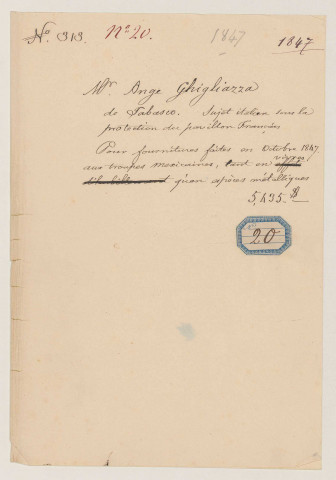 No 313. no 20. 1847 1847
Mr. Ange Ghigliazza
de Tabasco. Sujet italien sous la
protection du pavillon Français
Pour fournitures faites en Octobre 1847
aux troupes mexicaines, tant en vivres
qu'en espèces métalliques
5,495 $
20